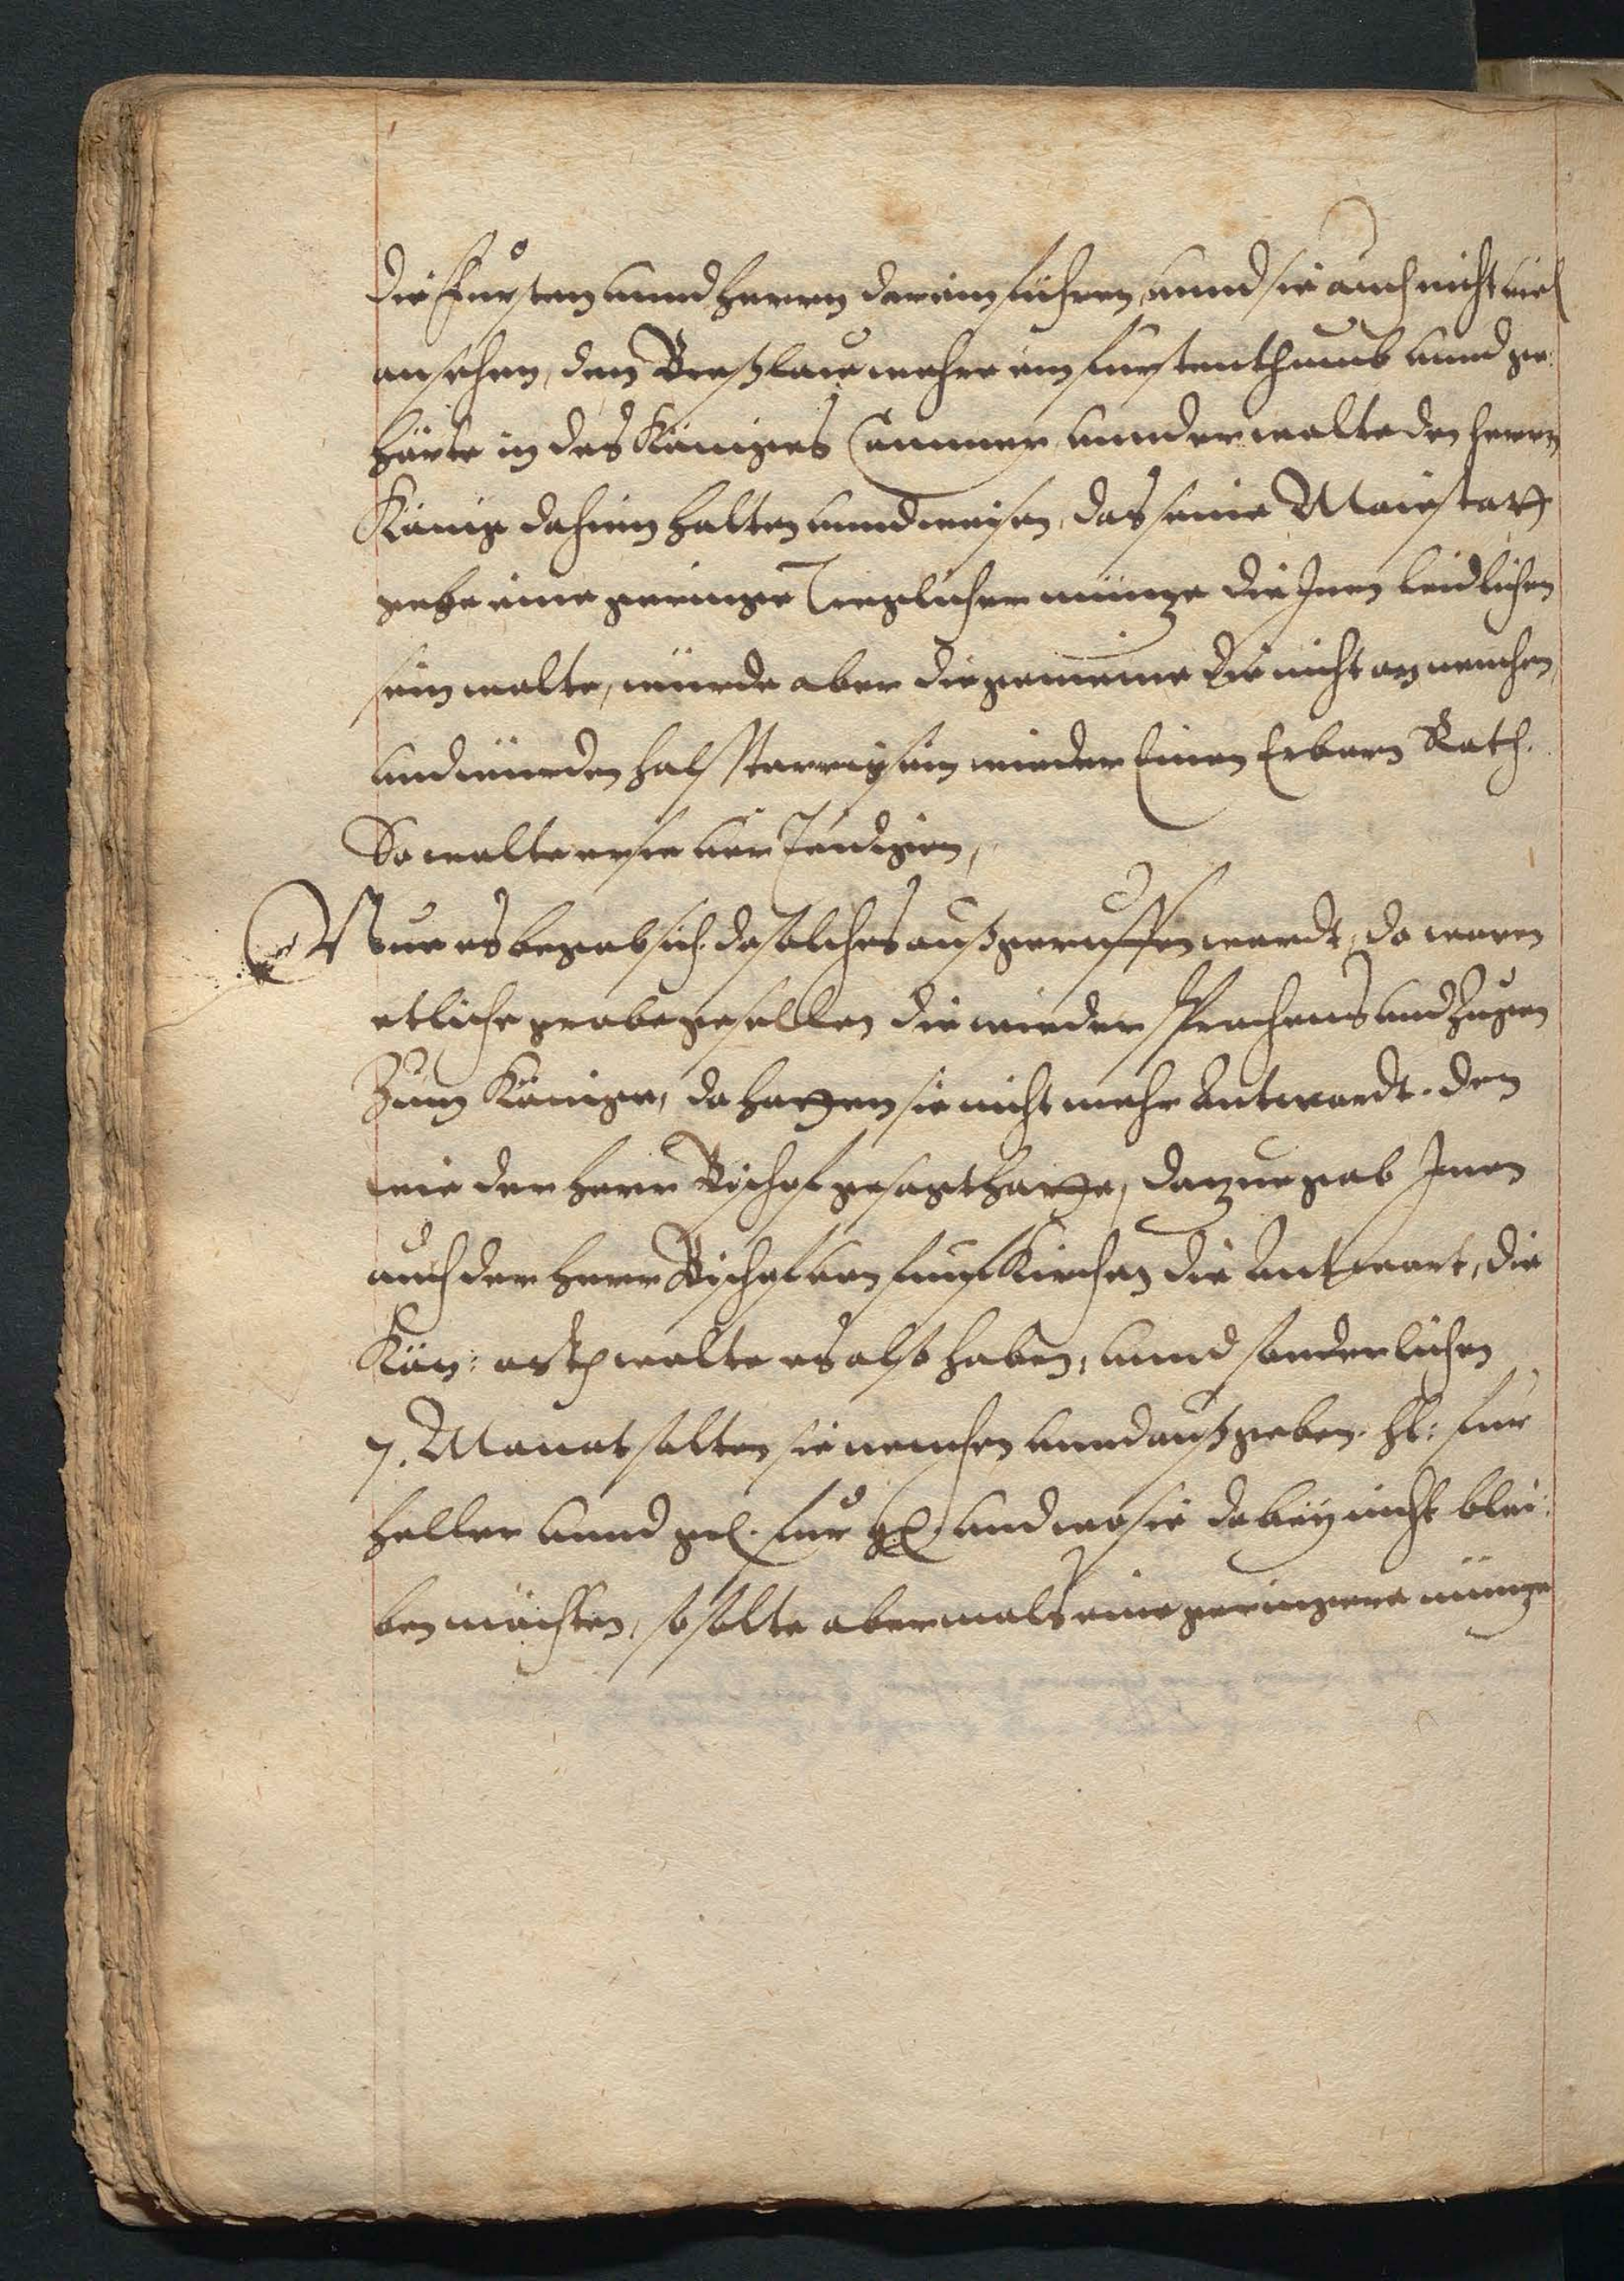 die Fursten unnd Herrn darein führen, unnd sie auch nicht viel
ansehen, den Breßlaw wehre ein furstenthumb unnd ge:
hörte in des Königes Cammer, unnd er wolte den Herrn
König dahinn halten unnd weisen, das seine Maiestatt
gebe eine geringe Tregliche müntze die Inen leidlichen
sein wolte, würde aber die gemeine die nicht an nemehen,
und würden halsstarrig sein wieder Einen Erbarn Rath.
So wolte er sie ver
Nun es begab sich da solches außgeruffen wardt, da waren
etliche grobe gesellen die wieder sprachens und zugen
Zum Könige, da hatten sie nicht mehr Antwordt. den
wie der Herr Bischof gesagt hatte, dartzu gab Inen
auch der Herr Bischof von funfkirchen die Antwort, die
Kön: Matt wolte es also haben, unnd sonderlichen
7. Monat solten sie nemehen unnd außgeben. hl: fur
heller unnd gl. fur gl. und wo sie dabey nicht blei:
ben möchten, so solte abermals eine geringere müntze